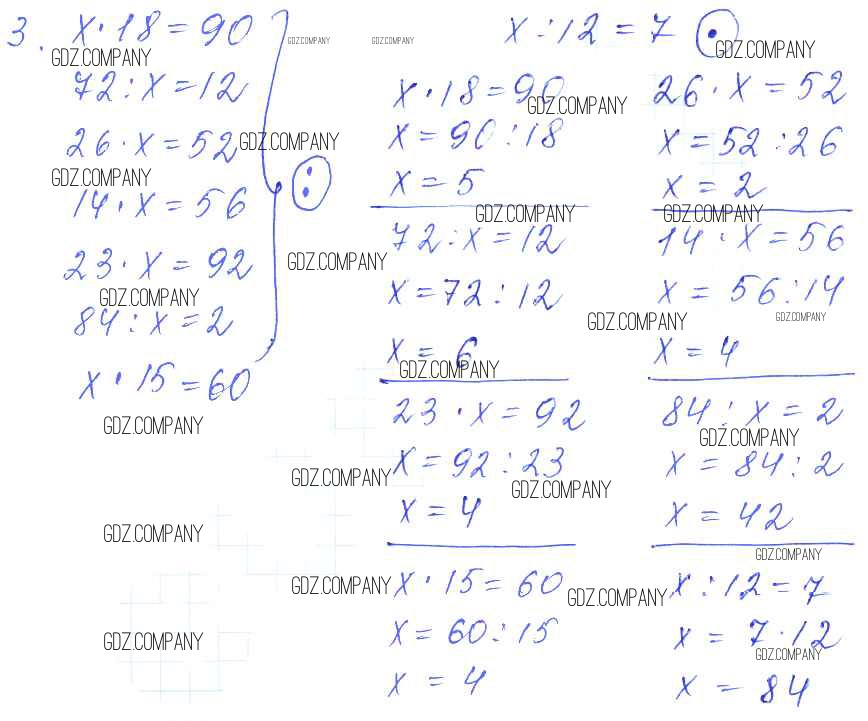 3. x · 18 = 90
GDZ.COMPANY
72 : x = 12
26 · x = 52
GDZ.COMPANY
GDZ.COMPANY
14 · x = 56
23 · x = 92
GDZ.COMPANY
84 : x = 2
x · 15 = 60
GDZ.COMPANY
GDZ.COMPANY
GDZ.COMPANY
:
GDZ.COMPANY
GDZ.COMPANY
x : 12 = 7 ·
GDZ.COMPANY
x · 18 = 90
GDZ.COMPANY
x = 90 : 18
x = 5
GDZ.COMPANY
GDZ.COMPANY
72 : x = 12
x = 72 : 12
GDZ.COMPANY
x = 6
GDZ.COMPANY
23 · x = 92
x = 92 : 23
GDZ.COMPANY
GDZ.COMPANY
x = 4
GDZ.COMPANY
x · 15 = 60
GDZ.COMPANY
x = 60 : 15
x = 4
26 · x = 52
x = 52 : 26
x = 2
GDZ.COMPANY
14 · x = 56
x = 56 : 14
GDZ.COMPANY
x = 4
84 : x = 2
GDZ.COMPANY
x = 84 : 2
x = 42
GDZ.COMPANY
x : 12 = 7
x = 7 · 12
GDZ.COMPANY
x = 84